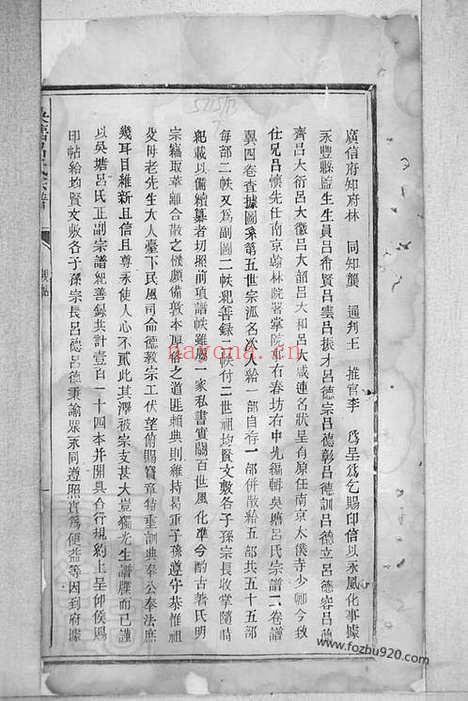 廣信府知府林　同知龔　通判王　推官李　為呈為乞賜印信以永風化事據
永豐縣監生生員呂希賢呂雲呂振才呂德宗呂德彰呂德訓呂德立呂德容呂德
齊呂大衍呂大徽呂大韶呂大和呂大咸連名狀呈有原任南京太僕寺少卿今致
仕兄呂懷先任南京翰林院署掌院事右春坊右中允編輯吳塘呂氏宗譜二卷譜
翼四卷查據圖系第五世宗派名次人給一部自存一部併散給五部共五十五部
每部二帙又為副圖二帙紀善錄二帙付二世祖均賢文敷各子孫宗長收掌隨時
紀載以備續纂者切照前項譜帙雖屬一家私書實關百世風化準今酌古著氏明
宗纂取萃離合散之機頗備敦本厚俗之道匪賴典則維持曷垂子孫遵守恭惟祖
父母老先生大人臺下民風司命德教宗工伏望俯賜寶章特垂訓典奉公奉法庶
幾耳目維新且信且尊永使人心不貳此其澤被宗支甚大豈獨先生譜牒而已謹
以吳塘呂氏正副宗譜紀善錄共計壹百一十四本并開具合行規約上呈仰候賜
印帖給均賢文敷各子孫宗長呂德呂德秉諭眾永同遵照實為便益等因到府據
呂氏宗譜
nayona.cn
www.fozhu920.com